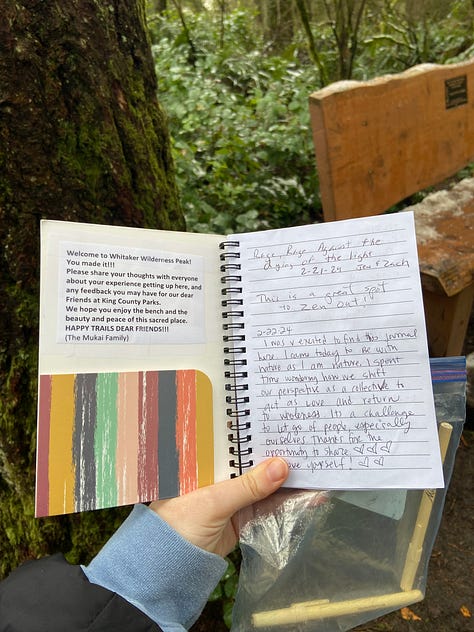 Welcome to Whitaker Wilderness Peak!
You made it!!!
Please share your thoughts with everyone
about your experience getting up here, and
any feedback you may have for our dear
Friends at King County Parks.
We hope you enjoy the bench and the
beauty and peace of this sacred place.
HAPPY TRAILS DEAR FRIENDS!!!
(The Mukai Family)
Rage, Rage Against the
dying of the light
2-21-24 Jen & Zach
This is a great spot
to zen out!
2-22-24
I was excited to find this journal
here. I came today to be with
nature as I am nature. I spent
time wondering how we shift
our perspective as a collective to
act as love and return
to wholeness. It's a challenge
to let go of people, especially
ourselves. Thanks for the
opportunity to share
yourself!